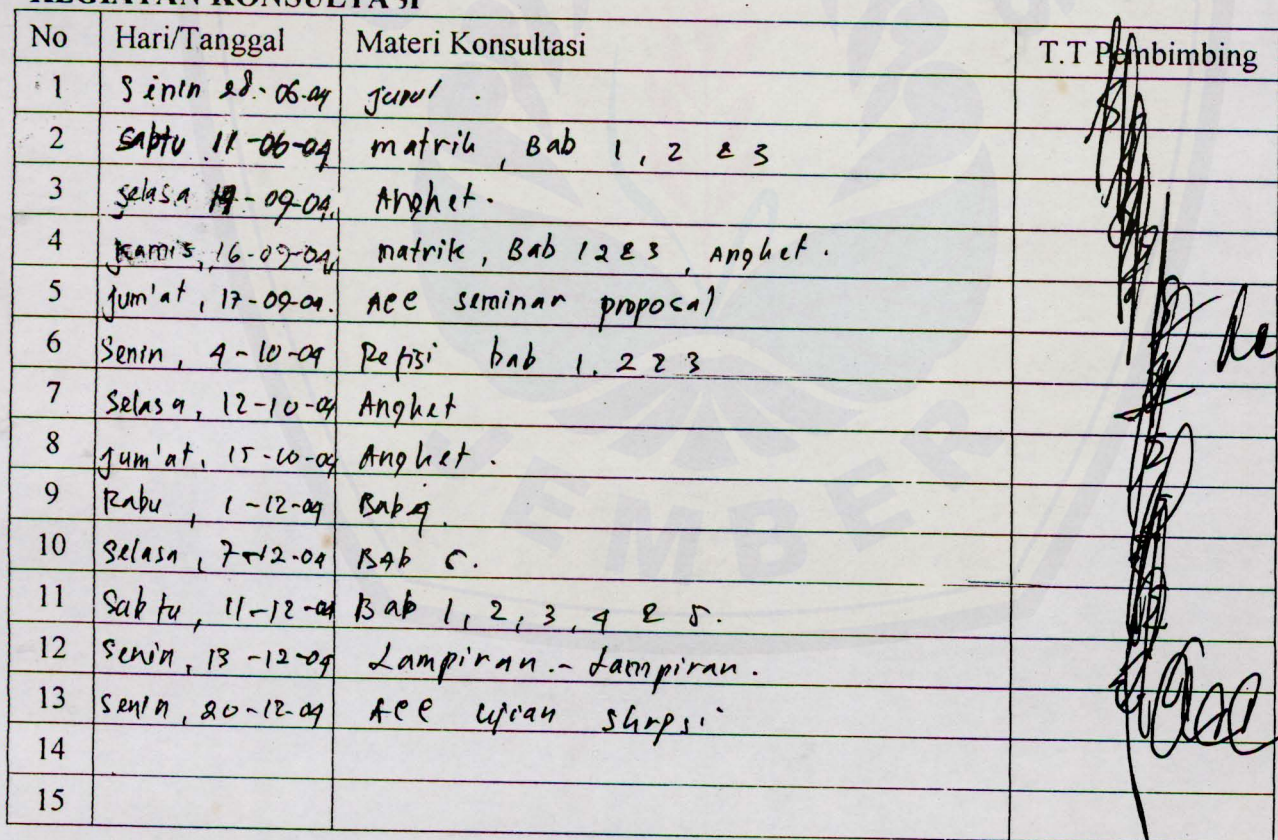 KEGIATAN KONSULTASI
No Hari/Tanggal Materi Konsultasi T.T Pembimbing
1 Senin 28-06-04 Judul.
2 Sabtu 11-06-04 matrik, Bab 1, 2 & 3
3 Selasa 14-09-04. Angket.
4 Kamis, 16-09-04 matrik, Bab 1 2 & 3, Angket.
5 Jum'at, 17-09-04. Acc seminar proposal
6 Senin, 4-10-04 Refisi bab 1, 2 & 3
7 Selasa, 12-10-04 Angket
8 Jum'at, 15-10-04 Angket.
9 Rabu, 1-12-04 Bab 4.
10 Selasa, 7-12-04 BAb 5.
11 Sabtu, 11-12-04 Bab 1, 2, 3, 4 & 5.
12 Senin, 13-12-04 Lampiran-Lampiran.
13 Senin, 20-12-04 Acc ujian skripsi
14
15
JEMBER